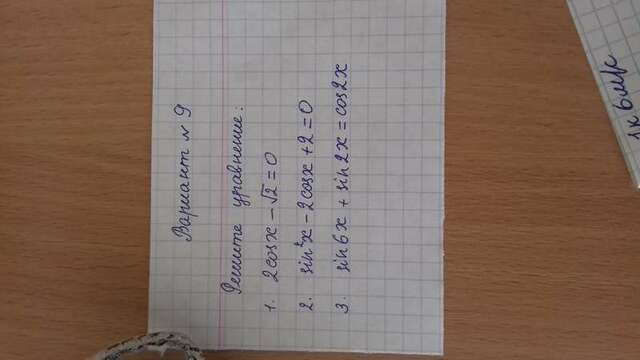 Вариант № 9
Решите уравнение:
1. 2cosx - √2 = 0
2. sin²x - 2cosx + 2 = 0
3. sin6x + sin2x = cos2x